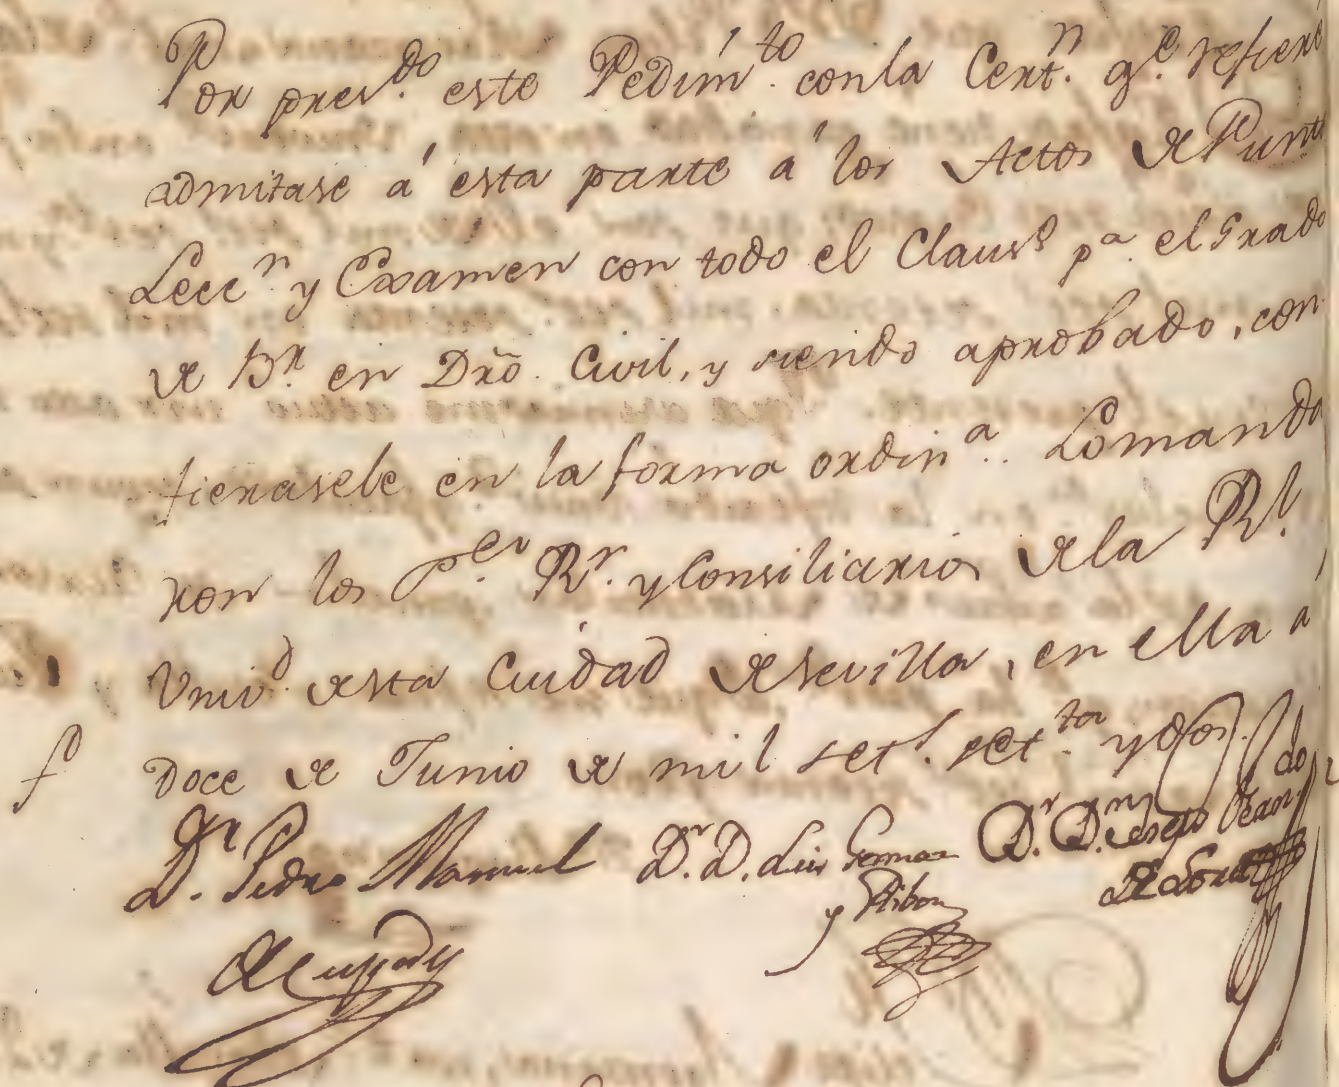 Por pres.do este Pedim.to con la Cert.n q.e refiere
admitase á esta parte á los Actos de Punts
Lecc.n y Exámen con todo el Claus.o p.a el Grado
de B.r en Dro. Civil, y siendo aprobado, con
fierasele en la forma ordin.a Lo mando
ron los S.es R.r y Consiliarios de la R.l
Univ.d desta Ciudad de Sevilla, en ella á
doce de Junio de mil set.s set.ta y dos.
D.r Pedro Manuel D.r D. Luis German D.r D.n Joseph
y Ribon